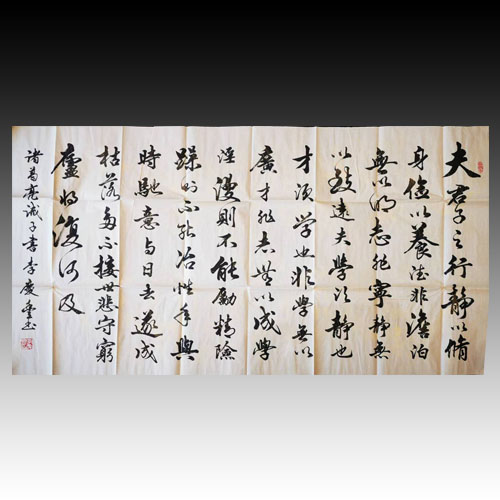 夫君子之行靜以脩
身儉以養德非澹泊
無以明志非寧靜無
以致遠夫學須靜也
才須學也非學無以
廣才非志無以成學
淫漫則不能勵精險
躁則不能冶性年與
時馳意与日去遂成
枯落多不接世悲守窮
廬將復何及
諸葛亮誡子書 李慶書